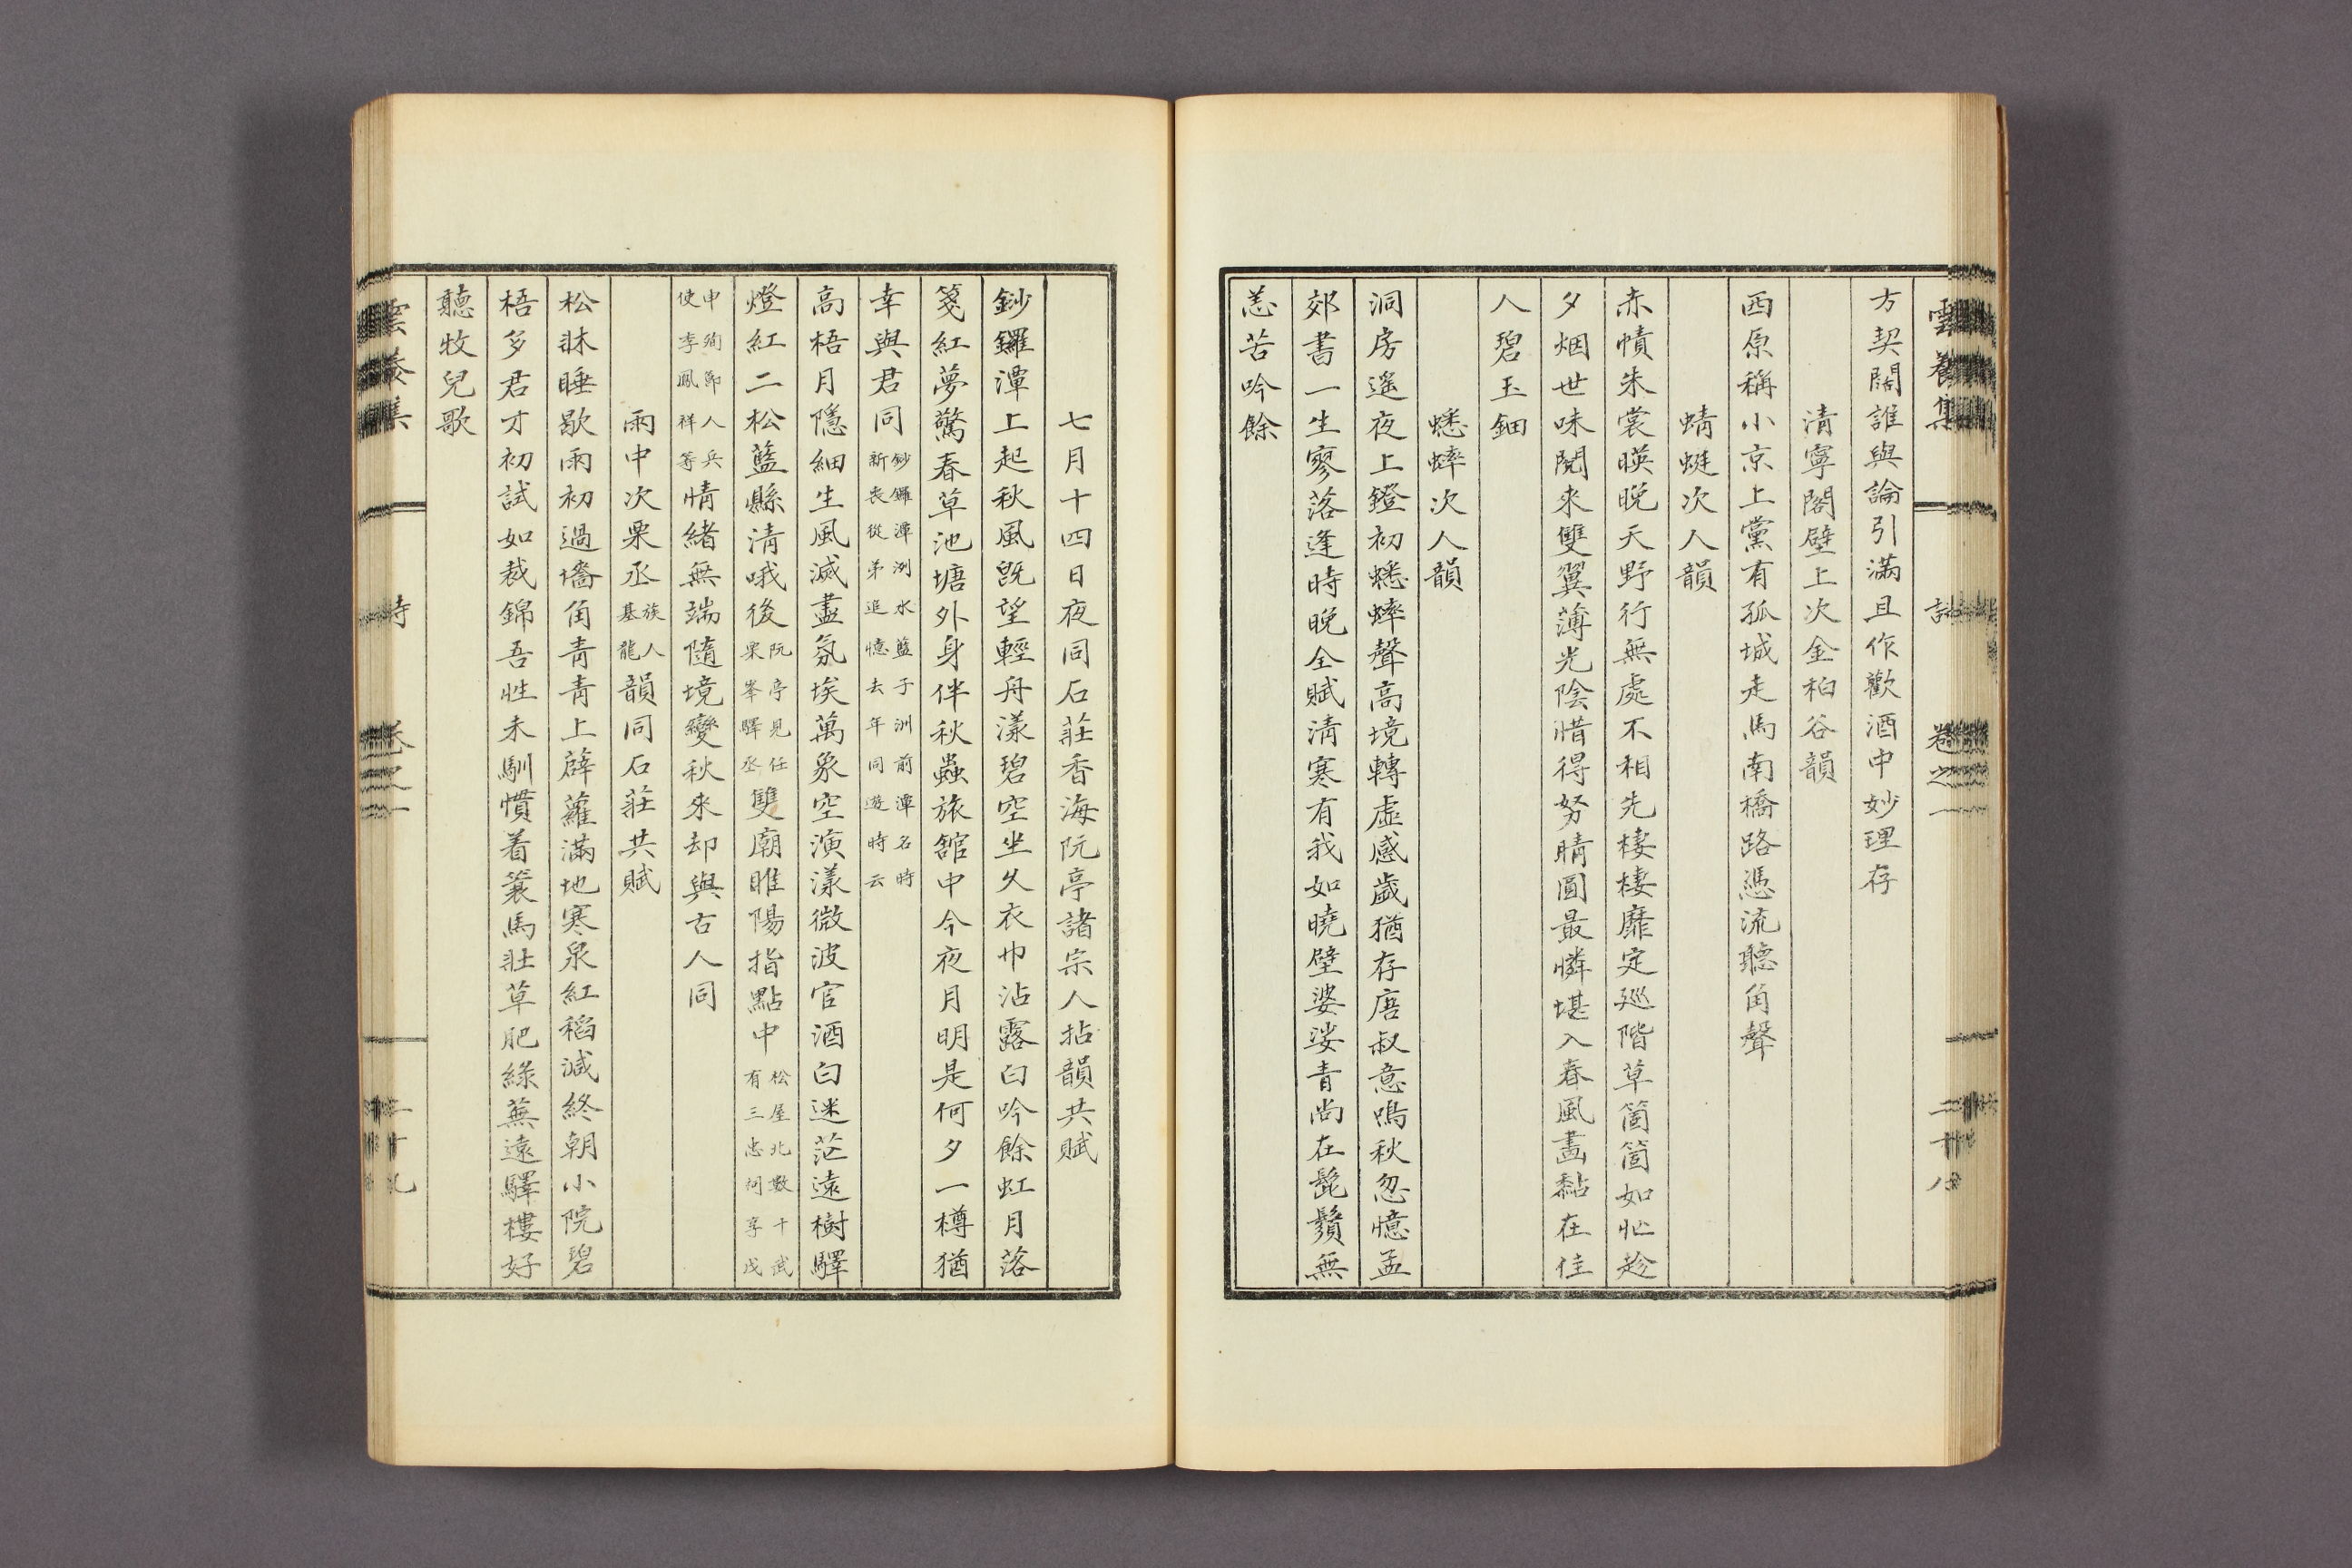 雲養集 詩 卷之一
方契闊誰與論引滿且作歡酒中妙理存
清寧閣壁上次金柏谷韻
西原稱小京上黨有孤城走馬南橋路憑流聽角聲
蜻蜓次人韻
赤幘朱裳暎晚天野行無處不相先棲棲靡定廵階草箇箇如忙趁
夕烟世味閱來雙翼薄光陰惜得努睛圓最憐堪入春風畵黏在佳
人碧玉鈿
蟋蟀次人韻
洞房遙夜上鐙初蟋蟀聲高境轉虛感歲猶存唐叔意鳴秋忽憶孟
郊書一生寥落逢時晚全賦淸寒有我如曉壁婆娑青尚在髭鬚無
恙苦吟餘
七月十四日夜同石莊香海阮亭諸宗人拈韻共賦
鈔鑼潭上起秋風旣望輕舟漾碧空坐久衣巾沾露白吟餘虹月落
箋紅夢驚春草池塘外身伴秋蟲旅舘中今夜月明是何夕一樽猶
幸與君同 鈔鑼潭洌水藍子洲前潭名時新喪從弟追憶去年同遊時云
高梧月隱細生風滅盡氛埃萬象空演漾微波官酒白迷茫遠樹驛
燈紅二松藍縣淸哦後 阮亭見任栗峯驛丞 雙廟睢陽指點中 松屋北數十武有三忠祠享戊
申殉節人兵使李鳳祥等 情緒無端隨境變秋來却與古人同
雨中次栗丞 族人基龍 韻同石莊共賦
松牀睡歇雨初過墻角靑靑上薜蘿滿地寒泉紅稻減終朝小院碧
梧多君才初試如裁錦吾性未馴慣着簑馬壯草肥綠蕪遠驛樓好
聽牧兒歌
雲養集 詩 卷之一